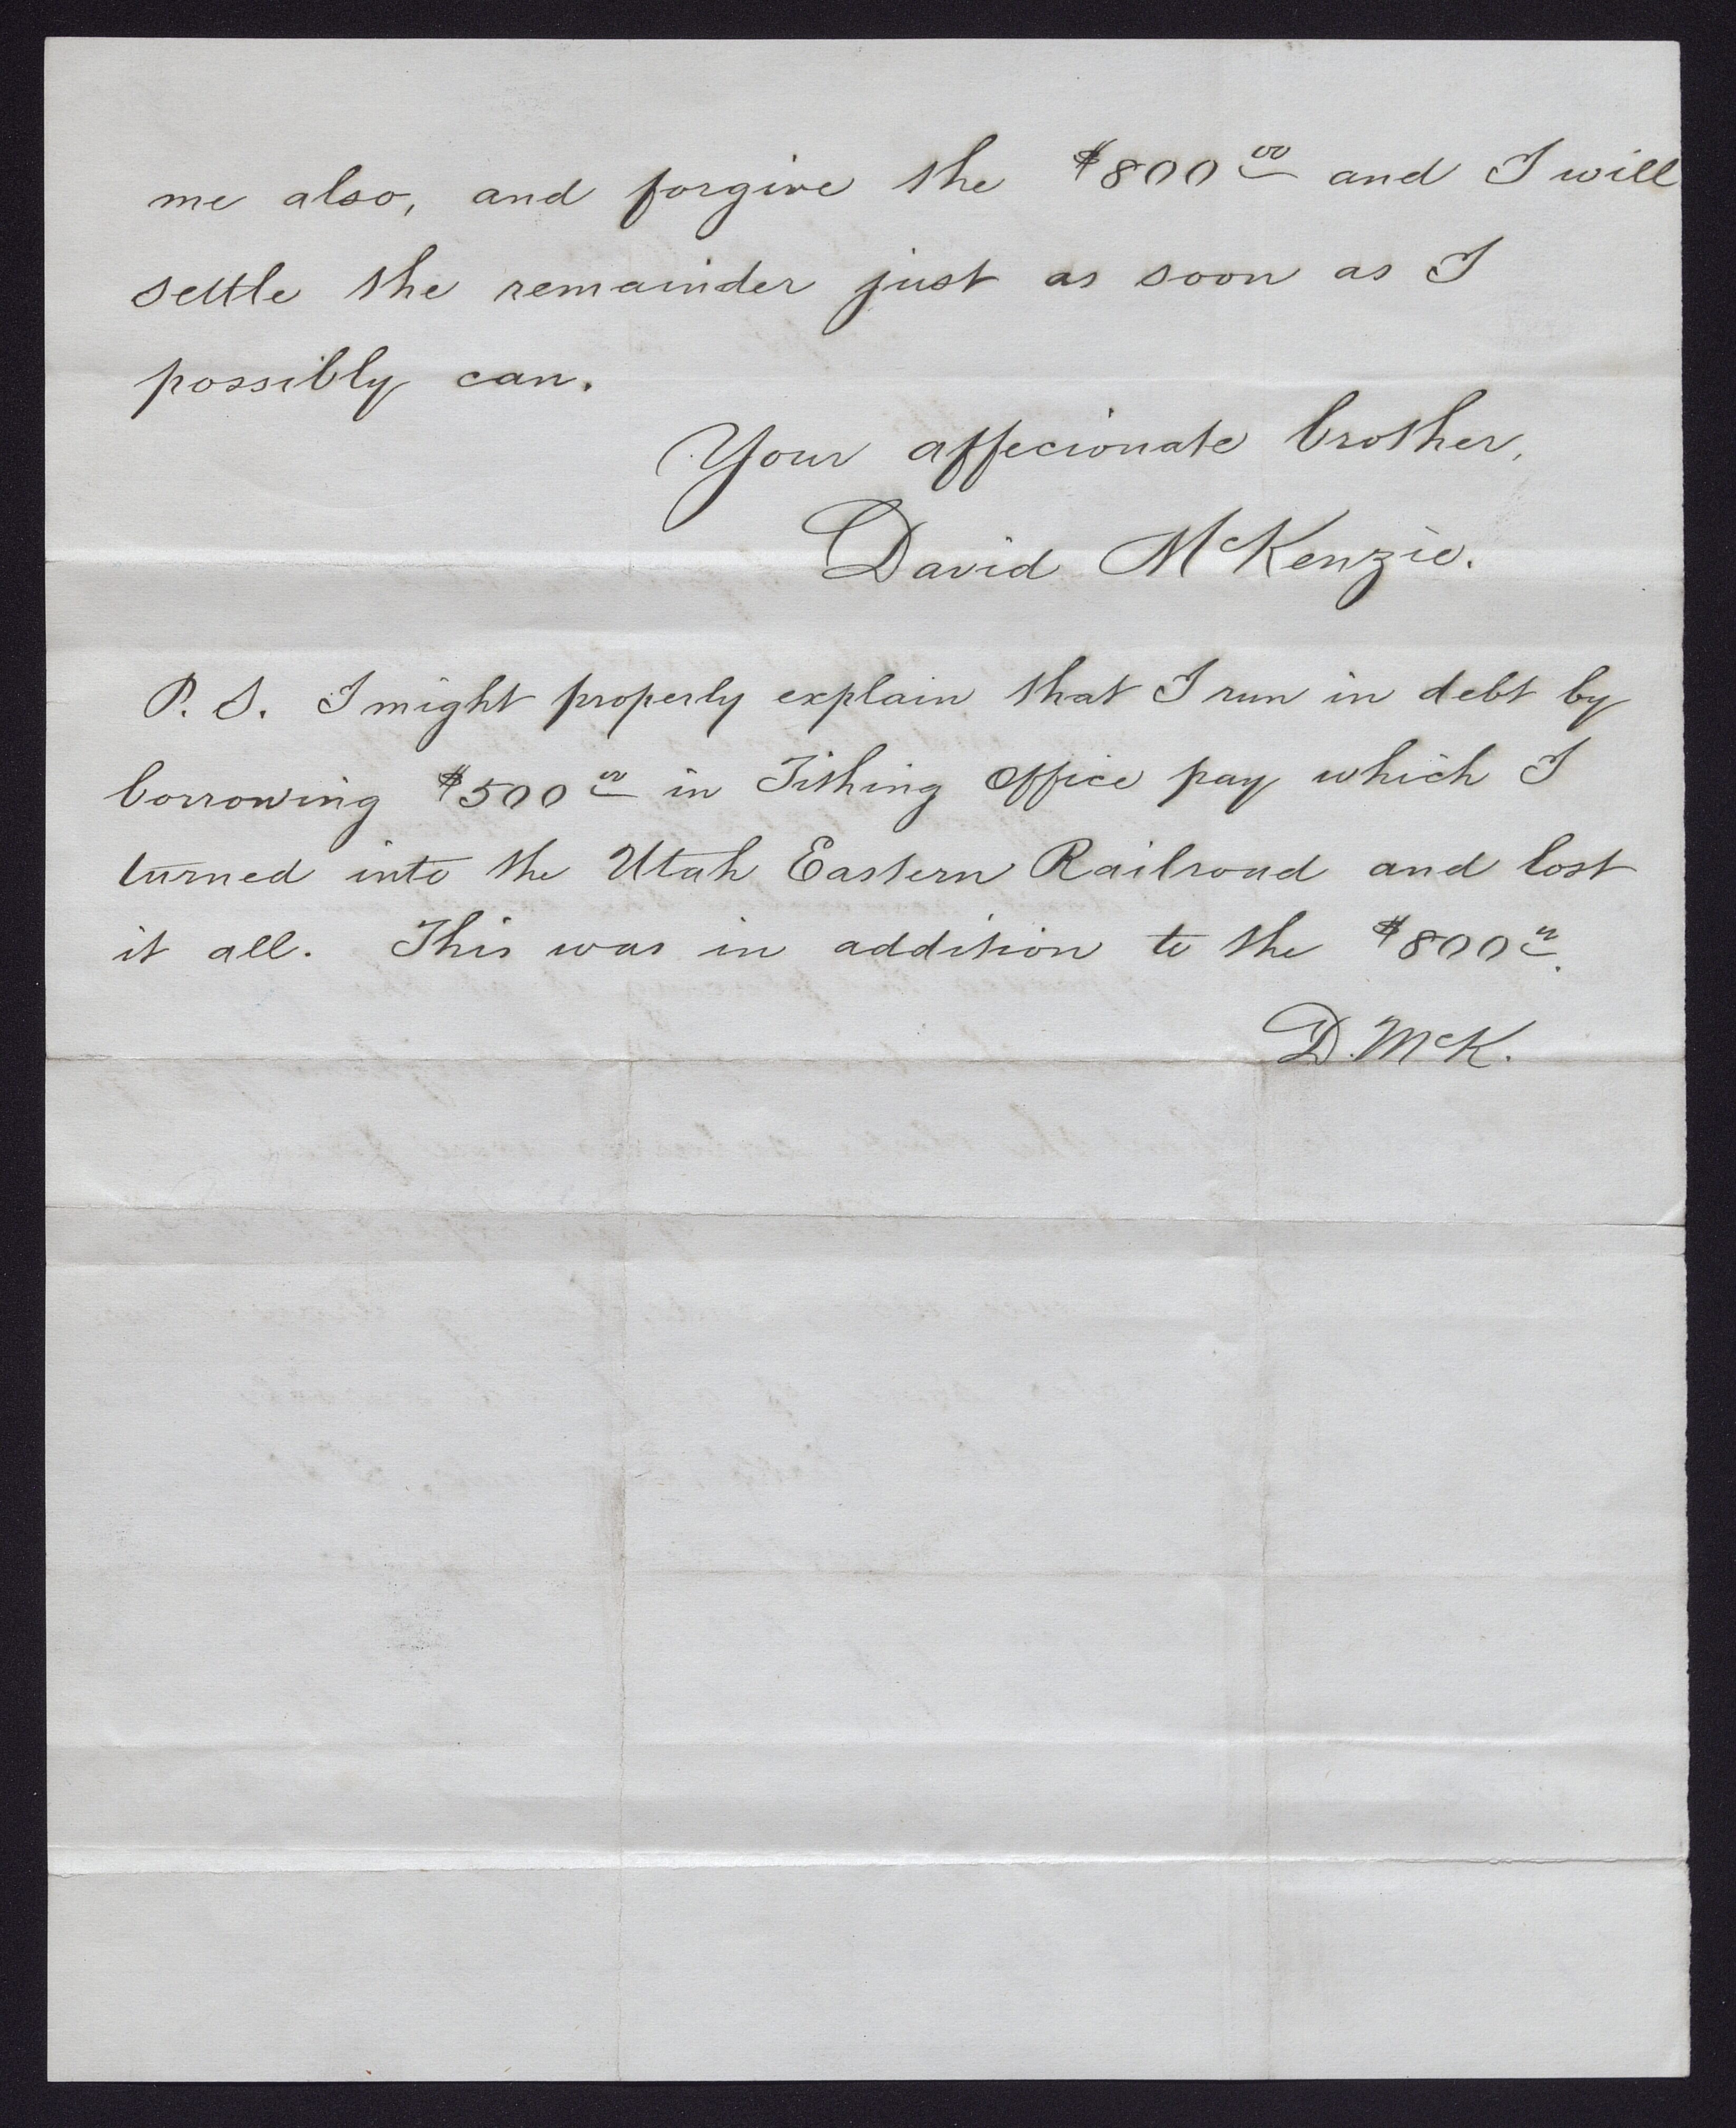 me also, and forgive the $800 00 and I will
settle the remainder just as soon as I
possibly can.
Your affecionate brother,
David McKenzie.
P. S. I might properly explain that I run in debt by
borrowing $500 00 in Tithing Office pay which I
turned into the Utah Eastern Railroad and lost
it all. This was in addition to the $800 00.
D. McK.